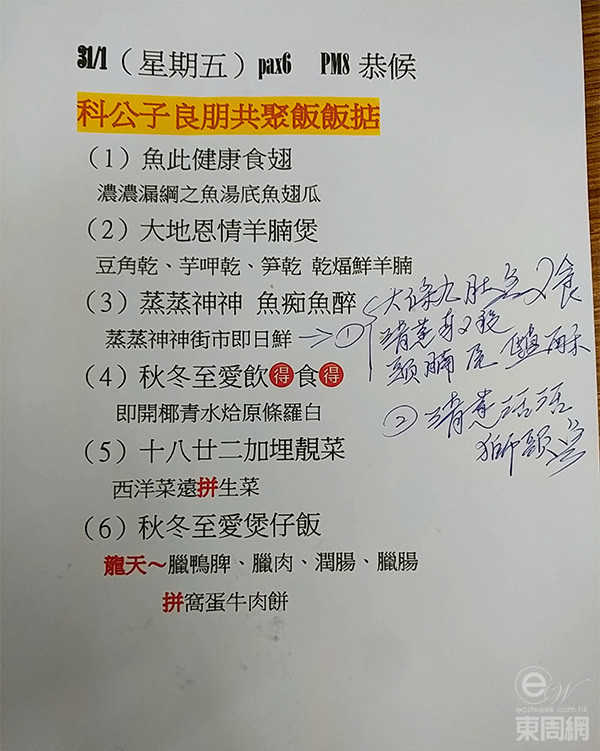 31/1（星期五）pax6 PM8 恭候
科公子良朋共聚飯飯掂
（1）魚此健康食翅
濃濃漏綱之魚湯底魚翅瓜
（2）大地恩情羊腩煲
豆角乾、芋呷乾、笋乾 乾煏鮮羊腩
（3）蒸蒸神神 魚痴魚醉
蒸蒸神神街市即日鮮 → ①
大條九肚魚 2食
清蒸
頭腩尾 椒鹽
② 清蒸活活
獅頭魚
（4）秋冬至愛飲得食得
即開椰青水烚原條羅白
（5）十八廿二加埋靚菜
西洋菜遠拼生菜
（6）秋冬至愛煲仔飯
龍天～臘鴨脾、臘肉、潤腸、臘腸
拼窩蛋牛肉餅
ew
eastweek.com.hk
東周網